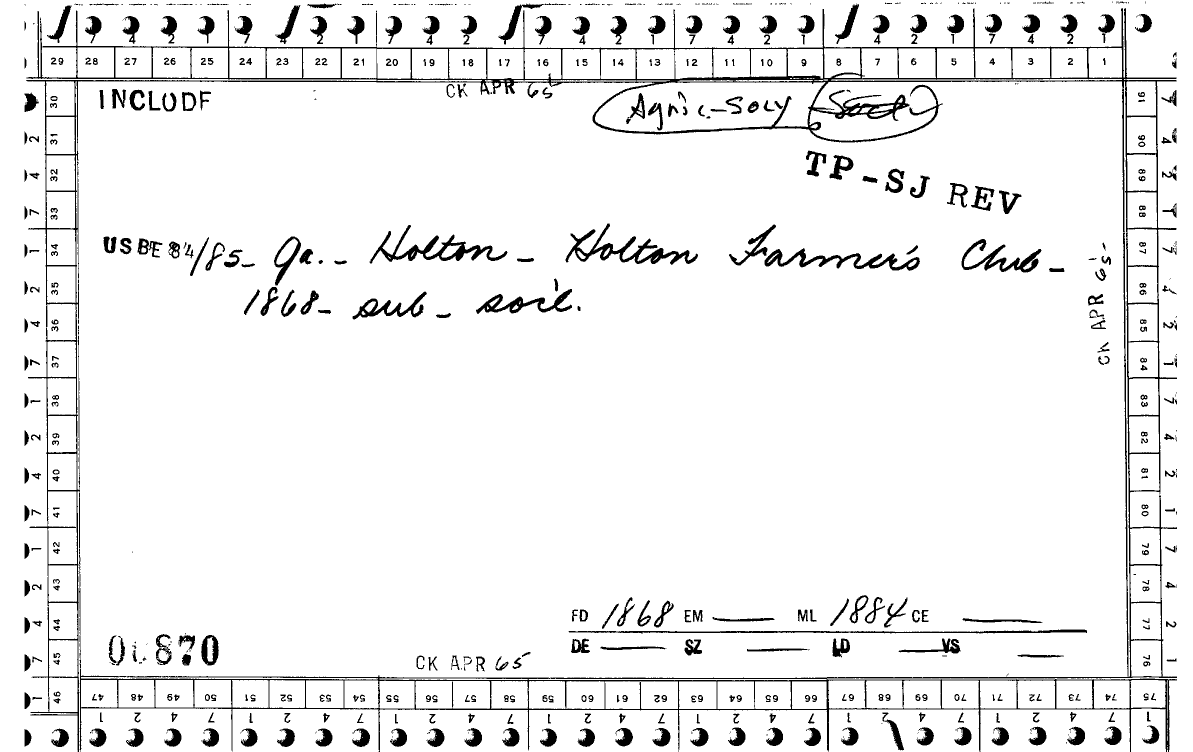 7 4 2 1 7 4 2 1 7 4 2 1 7 4 2 1 7 4 2 1 7 4 2 1 7 4 2 1
29 28 27 26 25 24 23 22 21 20 19 18 17 16 15 14 13 12 11 10 9 8 7 6 5 4 3 2 1
INCLUDF
CK APR 65
Agric-Socy
TP-SJ REV
USBE 84/85- Ga. - Holton - Holton Farmer's Club -
1868 - sub - soil.
CK APR 65
FD 1868 EM ML 1884 CE
DE SZ LD VS
00870
CK APR 65
30 31 32 33 34 35 36 37 38 39 40 41 42 43 44 45 46
91 90 89 88 87 86 85 84 83 82 81 80 79 78 77 76 75
47 48 49 50 51 52 53 54 55 56 57 58 59 60 61 62 63 64 65 66 67 68 69 70 71 72 73 74 75
1 2 4 7 1 2 4 7 1 2 4 7 1 2 4 7 1 2 4 7 1 2 4 7 1 2 4 7 1